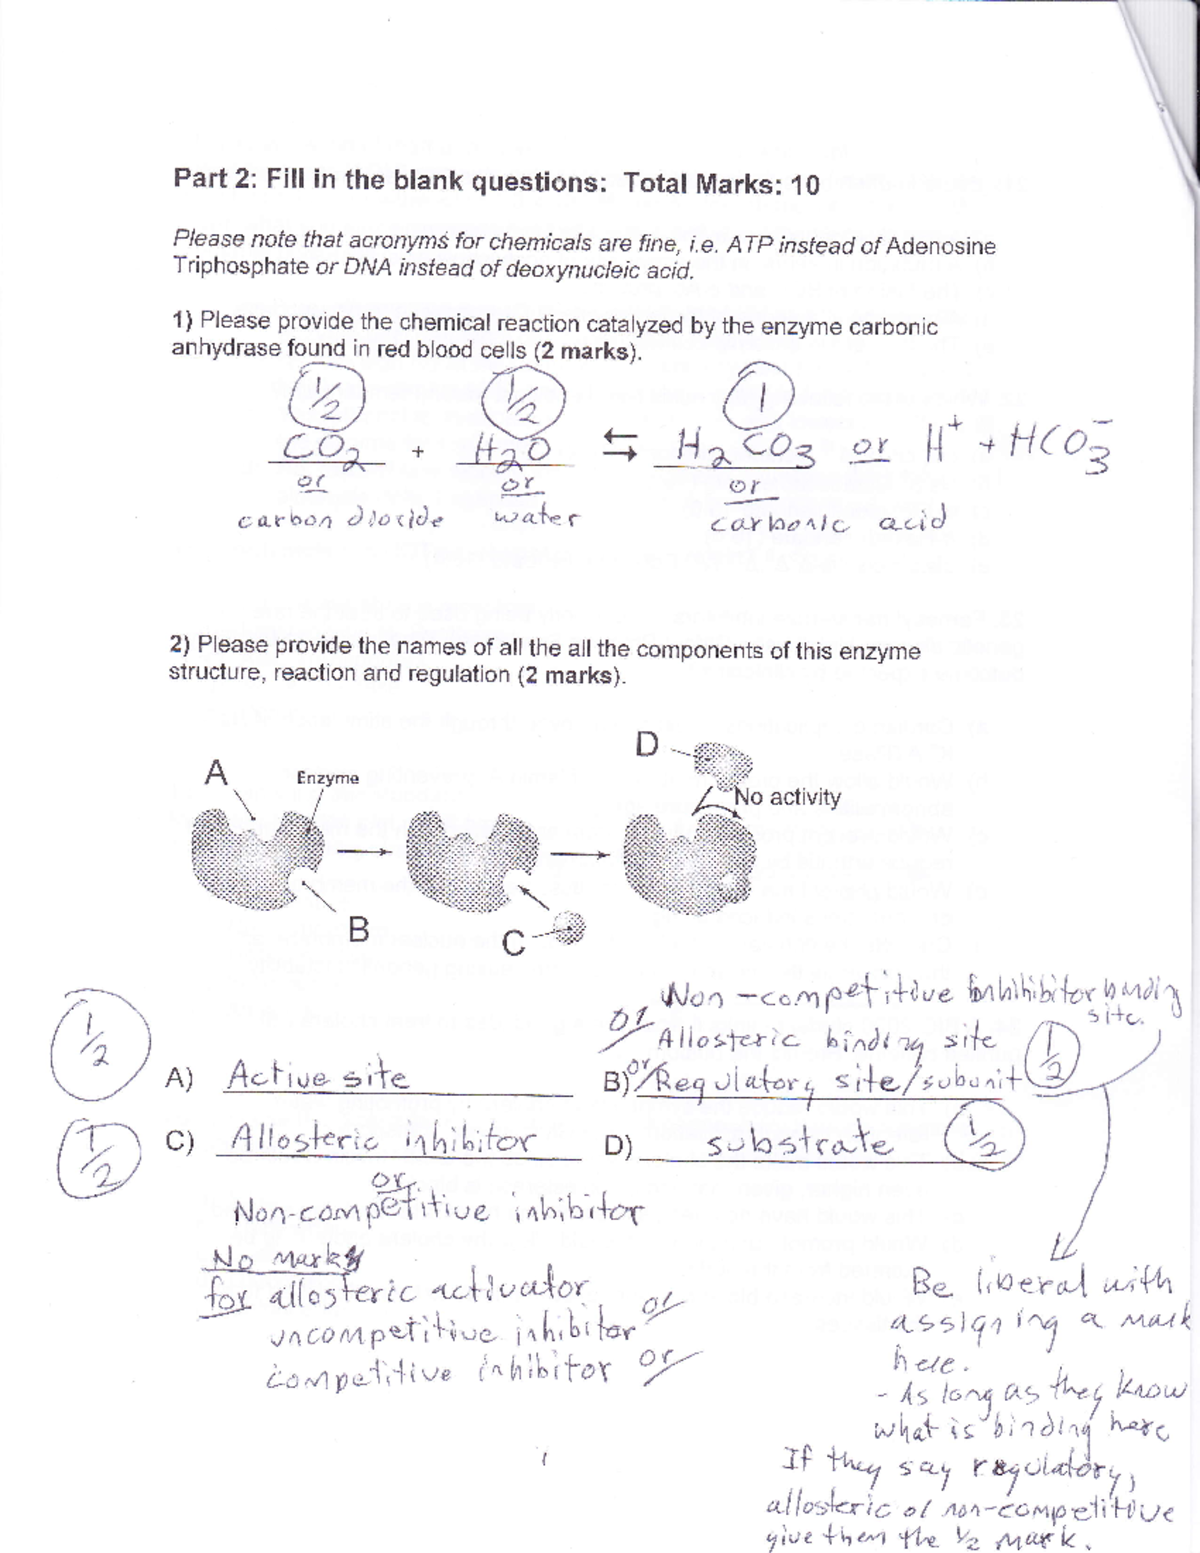 Part 2: Fill in the blank questions: Total Marks: 10
Please note that acronyms for chemicals are fine, i.e. ATP instead of Adenosine
Triphosphate or DNA instead of deoxynucleic acid.
1) Please provide the chemical reaction catalyzed by the enzyme carbonic
anhydrase found in red blood cells (2 marks).
1/2 1/2 1
CO2 + H2O ⇆ H2CO3 or H+ + HCO3-
or or or
carbon dioxide water carbonic acid
2) Please provide the names of all the all the components of this enzyme
structure, reaction and regulation (2 marks).
D
A Enzyme
No activity
B
C
Non-competitive inhibitor binding
site.
or Allosteric binding site
1/2 A) Active site B) or Regulatory site/subunit 1/2
1/2 C) Allosteric inhibitor D) substrate 1/2
or
Non-competitive inhibitor
No marks
for allosteric activator or
uncompetitive inhibitor or
competitive inhibitor
Be liberal with
assigning a mark
here.
- As long as they know
what is binding here
If they say regulatory,
allosteric or non-competitive
give them the 1/2 mark.
1